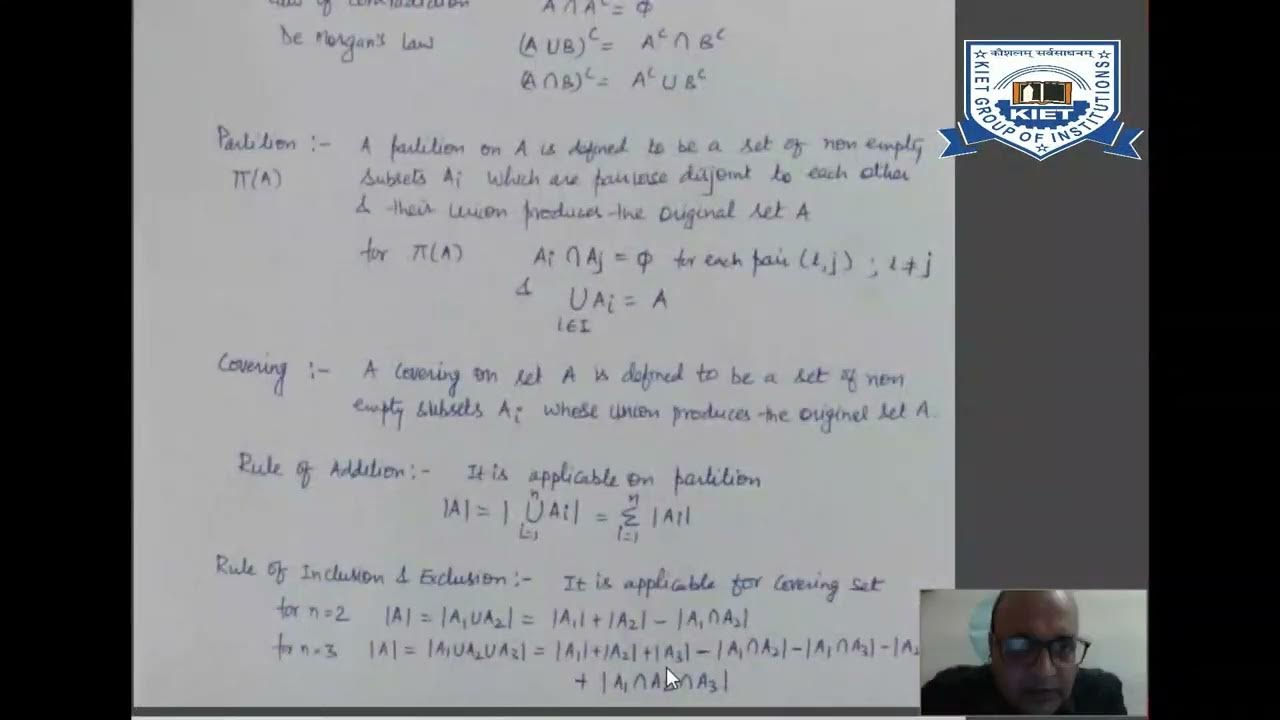 Law of Contradiction A ∩ Aᶜ = ϕ
De Morgan's Law (A ∪ B)ᶜ = Aᶜ ∩ Bᶜ
(A ∩ B)ᶜ = Aᶜ ∪ Bᶜ
कौशलम् सर्वसाधनम्
KIET GROUP OF INSTITUTIONS
KIET
Partition :- A partition on A is defined to be a set of non empty
π(A) subsets Ai which are pairwise disjoint to each other
& their union produces the original set A
for π(A) Ai ∩ Aj = ϕ for each pair (i,j) ; i ≠ j
& ∪ Ai = A
i∈I
Covering :- A covering on set A is defined to be a set of non
empty subsets Ai whose union produces the original set A.
Rule of Addition :- It is applicable on partition
|A| = | n∪i=1 Ai| = n∑i=1 |Ai|
Rule of Inclusion & Exclusion :- It is applicable for covering set
for n=2 |A| = |A₁∪A₂| = |A₁| + |A₂| - |A₁∩A₂|
for n=3 |A| = |A₁∪A₂∪A₃| = |A₁|+|A₂|+|A₃| - |A₁∩A₂| - |A₁∩A₃| - |A₂
+ |A₁∩A₂∩A₃|